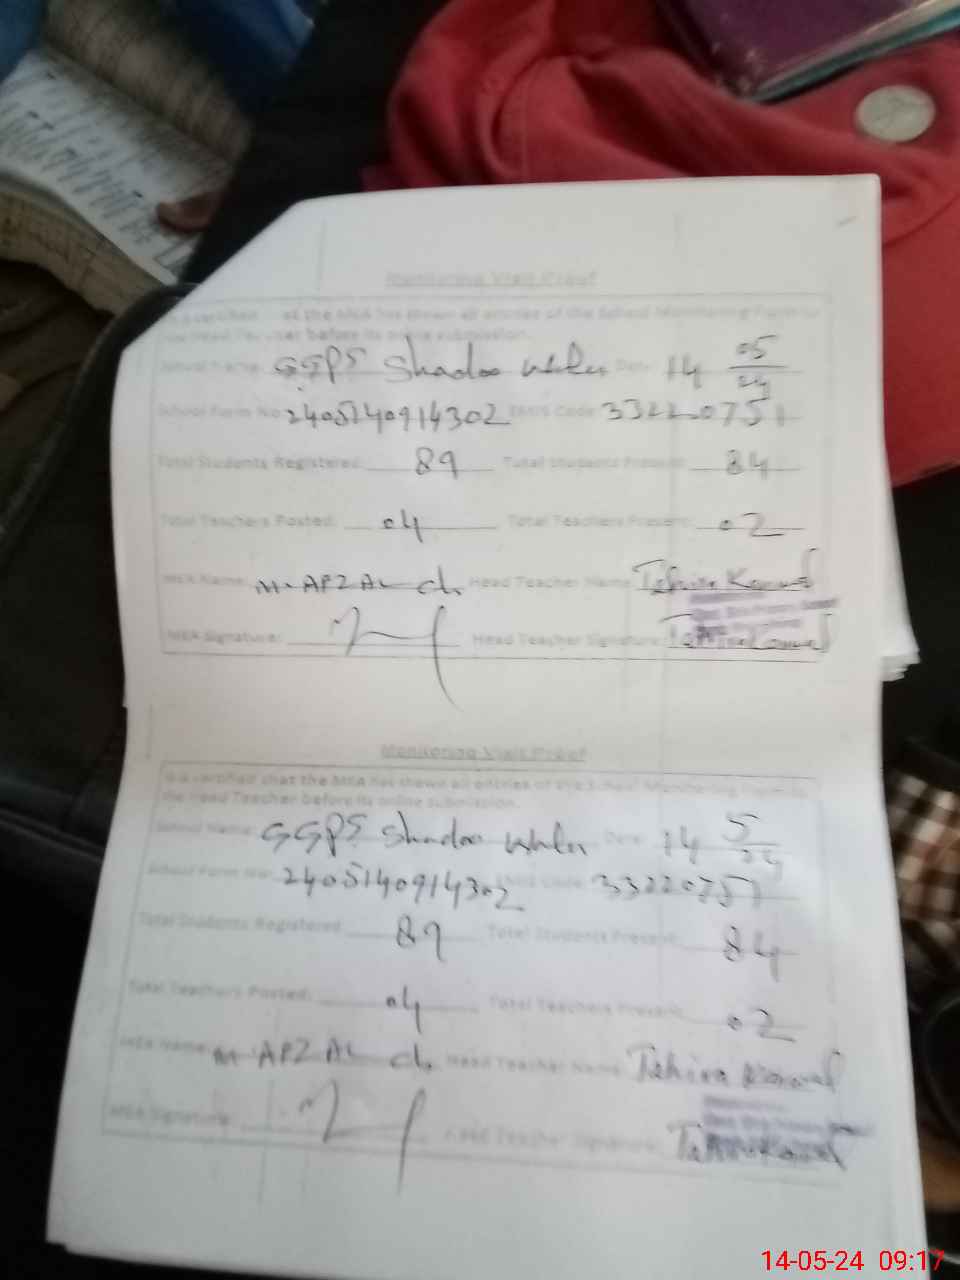 Monitoring Visit Proof
It is certified that the MEA has shown all entries of the School Monitoring Form to
the Head Teacher before its online submission.
School Name: GGPS Shadoo Date: 14 05/24
School Form No: 2405140914302 EMIS Code: 33220751
Total Students Registered: 89 Total Students Present: 84
Total Teachers Posted: 04 Total Teachers Present: 02
MEA Name: M. AFZAL ch. Head Teacher Name: Tahira Kanwal
MEA Signature: Head Teacher Signature: Tahira Kanwal
Monitoring Visit Proof
It is certified that the MEA has shown all entries of the School Monitoring Form to
the Head Teacher before its online submission.
School Name: GGPS Shadoo Date: 14 5/24
School Form No: 2405140914302 EMIS Code: 33220751
Total Students Registered: 89 Total Students Present: 84
Total Teachers Posted: 04 Total Teachers Present: 02
MEA Name: M. AFZAL ch. Head Teacher Name: Tahira Kanwal
MEA Signature: Head Teacher Signature: Tahira Kanwal
14-05-24 09:17